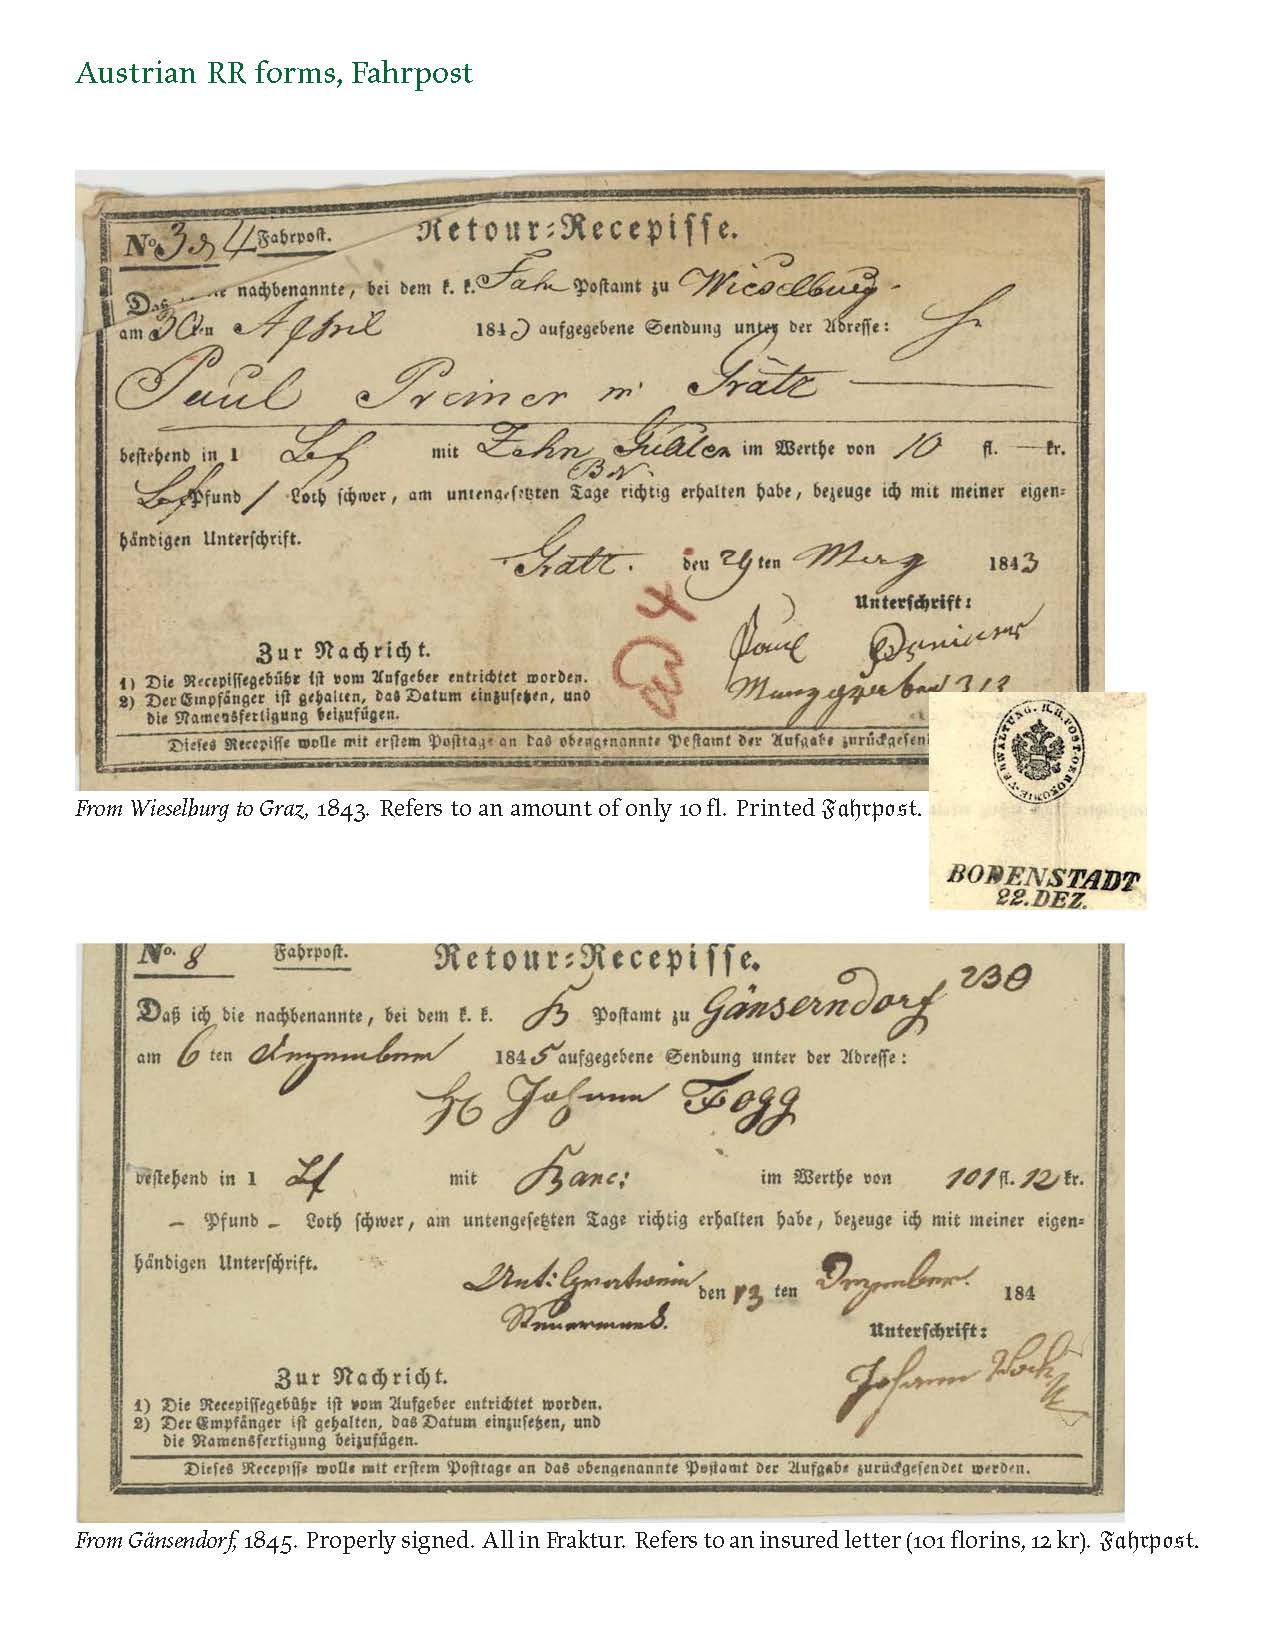 Austrian RR forms, Fahrpost
No. 3 4 Fahrpost. Retour-Recepisse.
Daß nachbenannte, bei dem k. k. Fahr Postamt zu Wieselburg
am 30ten April 1843 aufgegebene Sendung unter der Adresse:
Paul Preiner in Gratz
bestehend in 1 Bf mit Zehn Gulden im Werthe von 10 fl. — kr.
BN.
Pfund 1 Loth schwer, am untengesetzten Tage richtig erhalten habe, bezeuge ich mit meiner eigen-
händigen Unterschrift.
Gratz. den 29ten 1843
Unterschrift:
Paul
Zur Nachricht.
1) Die Recepissegebühr ist vom Aufgeber entrichtet worden.
2) Der Empfänger ist gehalten, das Datum einzusetzen, und
die Namensfertigung beizufügen.
Dieses Recepisse wolle mit erstem Posttage an das obengenannte Postamt der Aufgabe zurückgesen
K.K. POST-OEKONOMIE-VERWALTUNG.
BODENSTADT
22. DEZ.
From Wieselburg to Graz, 1843. Refers to an amount of only 10 fl. Printed Fahrpost.
No. 8 Fahrpost. Retour-Recepisse.
230
Daß ich die nachbenannte, bei dem k. k. Postamt zu Gänserndorf
am 6 ten Dezember 1845 aufgegebene Sendung unter der Adresse:
H Johann Fogg
bestehend in 1 Bf mit Banc: im Werthe von 101 fl. 12 kr.
– Pfund – Loth schwer, am untengesetzten Tage richtig erhalten habe, bezeuge ich mit meiner eigen-
händigen Unterschrift.
den 13 ten Dezember 184
Unterschrift:
Johann
Zur Nachricht.
1) Die Recepissegebühr ist vom Aufgeber entrichtet worden.
2) Der Empfänger ist gehalten, das Datum einzusetzen, und
die Namensfertigung beizufügen.
Dieses Recepisse wolle mit erstem Posttage an das obengenannte Postamt der Aufgabe zurückgesendet werden.
From Gänsendorf, 1845. Properly signed. All in Fraktur. Refers to an insured letter (101 florins, 12 kr). Fahrpost.